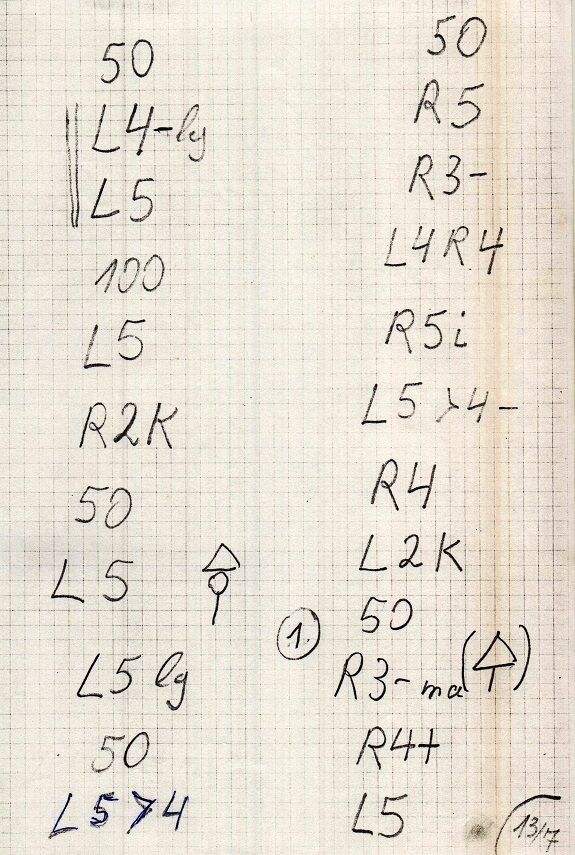 50
L4-lg
L5
100
L5
R2K
50
L5
L5 lg
50
L5>4
50
R5
R3-
L4R4
R5i
L5>4-
R4
L2K
50
1.
R3-ma
R4+
L5
13/7